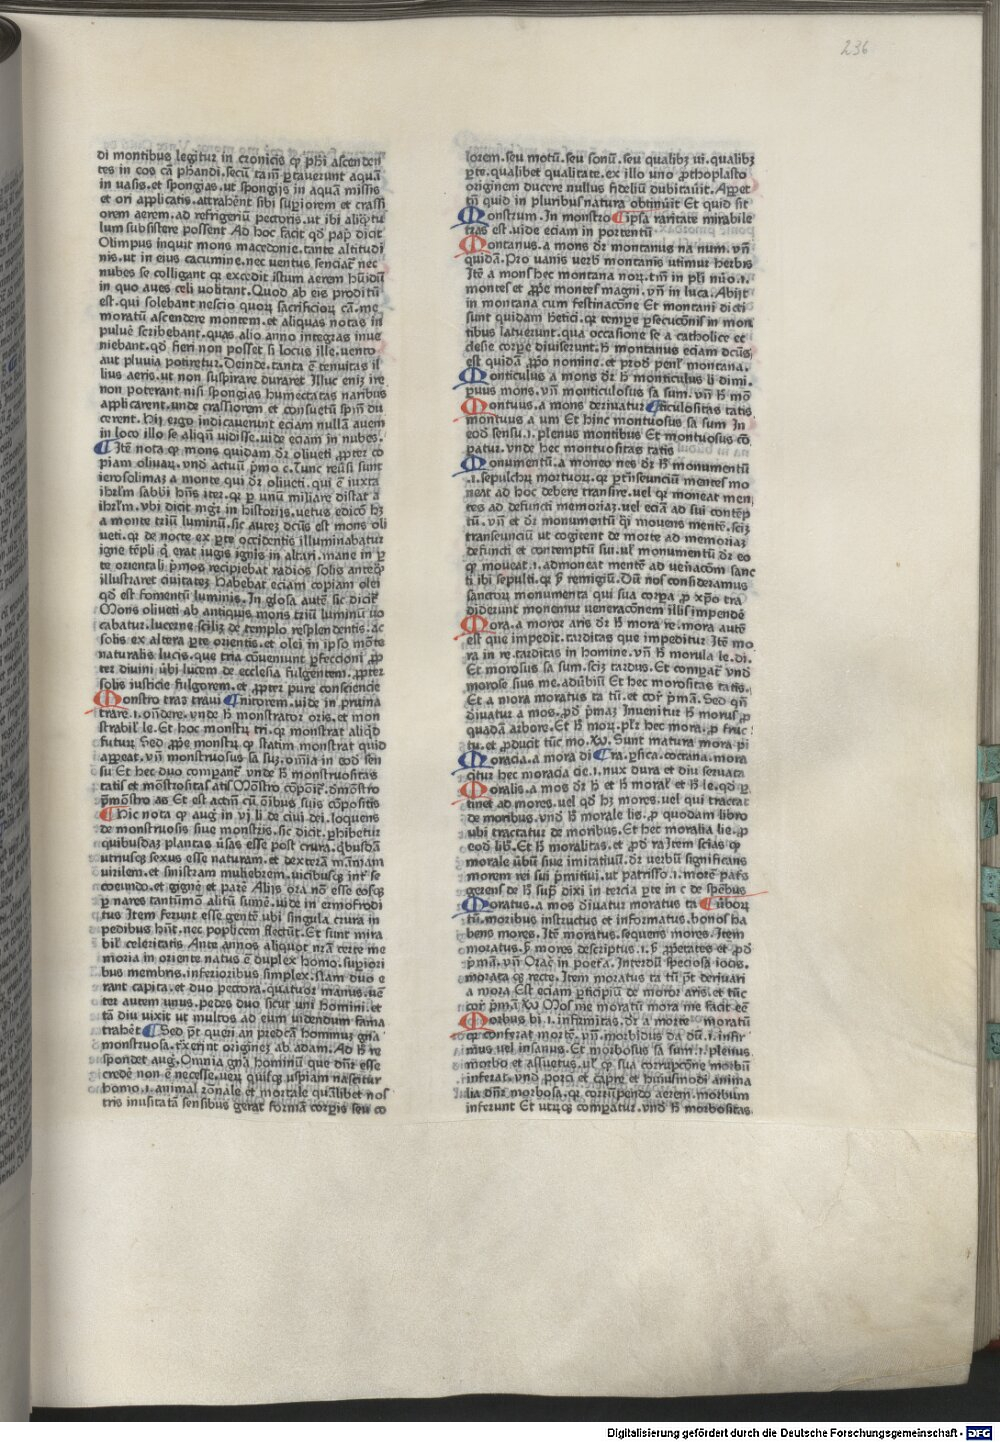 236
di montibus legitur in cronicis qꝫ phi ascenden
tes in eos cā phandi. secū tam̄ ꝑtauerunt aquā
in uasis. et spongias. ut spongijs in aquā missis
et ori applicatis. attrahēnt sibi supiorem et crassi
orem aerem. ad refrigeriū pectoris. ut ibi aliqͣtu
lum subsistere possent Ad hoc facit qd̄ pap̄ dicit
Olimpus inquit mons macedonie. tante altitudi
nis. ut in eius cacumine. nec uentus senciat᷑ nec
nubes se colligant qꝛ excedit istum aerem hu̅idū
in quo aues celi uolitant. Quod ab eis proditū
est. qui solebant nescio quoꝝ sacrificioꝝ cā. me
moratū ascendere montem. et aliquas notas in
puluē scribebant. quas alio anno integras inue
niebant. qd̄ fieri non posset si locus ille. uento
aut pluvia potiretur. Deinde. tanta ē tenuitas il
lius aeris. ut non suspirare duraret Illuc enī ire
non poterant nisi spongias humectatas naribus
applicarent. unde crassiorem et consuetū spm̄ du
cerent. Hij ergo indicauerunt eciam nullā auem
in loco illo se aliqn̄ uidisse. uide eciam in nubes.
Itē nota qꝫ mons quidam dr̄ oliueti ꝓpter co
piam oliuaꝝ. vnd̄ actuū pͥmo c. Tunc reusi sunt
ierosolimaꝫ a monte qui dr̄ oliueti. qui ē iuxta
ihrlm̄ sabbi hn̄s iter. qꝛ ꝑ unū miliare distat a
ihrlm̄. vbi dicit mgr̄ in historijs. uetus edico̅ hꝫ
a monte triū luminū. sic auteꝫ dcūs est mons oli
ueti. qꝛ de nocte ex ꝑte occidentis illuminabatur
igne tēpli q̇ erat iugis ignis in altari. mane in ꝑ
te orientali pͥmos recipiebat radios solis anteqͣ
illustraret ciuitateꝫ Habebat eciam copiam olei
qd̄ est fomentū luminis. In glosa autē sic dicit᷑
Mons oliueti ab antiquis mons triū luminū uo
cabatur. lucerne sciliꝫ de templo resplendentis. ac
solis ex altera ꝑte orientis. et olei in ipso mōte
naturalis lucis. que tria cōueniunt ꝑfeccioni ꝓp
ter diuini ūbi lucem de ecclesia fulgentem. ꝓpter
solis iusticie fulgorem. et ꝓpter pure consciencie
Monstro tras traui nitorem. uide in pruina
trare. i. on̄dere. vnde h̄ monstrator oris. et mon
strabil᷑ le. Et hoc monstꝝ tri. qꝛ monstrat aliqd̄
futuꝝ Sed ꝓpͥe monstꝝ qꝫ statim monstrat quid
appeat. vn̄ monstruosus sa suꝫ. om̄ia in eod̄ sen
su Et hec duo compant᷑ vnde h̄ monstruositas
tatis et mōstrositas atis Mōstro cōpoīt᷑. dmōstro
p̄mōstro as Et est actiū cū ōibus suis cōpositis
Hic nota qꝫ aug᷑ in vj li de ciui dei. loquens
de monstruosis siue monstris. sic dicit. ꝑhibetur
quibusdaꝫ plantas ūsas esse post crura. qͥbusdā
utriusqꝫ sexus esse naturam. et dexterā mamam
uirilem. et sinistram muliebrem. uicibusqꝫ int᷑ se
coeundo. et gignē et parē Alijs ora nō esse eosqꝫ
ꝑ nares tantūmō alitū sumē. uide in ermofrodi
tus Item ferunt esse gentē ubi singula crura in
pedibus hn̄t. nec poplicem flectūt. Et sunt mira
bil᷑ celeritatis Ante annos aliquot nrā certe me
moria in oriente natus ē duplex homo. supiori
bus membris. inferioribus simplex. Nam duo e
rant capita. et duo pectora. quatuor manus. uē
ter autem unus. pedes duo sicut uni homini. et
tā diu uixit ut multos ad eum uidendum fama
trahēt Sed pt̄ queri an predcā hominuꝫ gnā
monstruosa. txerint origineꝫ ab adam. Ad h̄ re
spondet aug᷑. Omnia gnā hominū que dnr̄ esse
credē non ē necesse. ueꝝ quisqꝫ uspiam nascitur
homo. i. animal rōnale et mortale quālibet nos
tris inusitatā sensibus gerat formā corpis seu co
lorem. seu motū. seu sonū. seu qualibꝫ ui. qualibꝫ
ꝑte. qualibet qualitate. ex illo uno ꝓthoplasto
originem ducere nullus fideliū dubitauit. Appet
tn̄ quid in pluribus natura obtinuit Et quid sit
Monstrum. In monstro ipsa raritate mirabile
tras est. uide eciam in portentū
Montanus. a mons dr̄ montanus na num. vn̄
quidā. Pro uanis verb᷑ montanis utimur herbis
Itē a mons hec montana noꝝ. tm̄ in pli nūo. i.
montes et ꝓpͥe montes magni. vn̄ in luca. Abijt
in montana cum festinacōne Et montani dicti
sunt quidam hetici. qꝛ tempe ꝑsecucōnis in mon
tibus latuerunt. qua occasione se a catholice ec
clesie corpe diuiserunt. h̄ montanus eciam dcūs
est quidā ꝓpͥo nomine. et prod̄ penl᷑ montana.
Monticulus a mons dr̄ h̄ monticulus li dimi.
puus mons. vn̄ monticulosus sa sum. vn̄ h̄ mō
Montuus. a mons deriuatur ticulositas tatis
montuus a um Et hinc montuosus sa sum In
eod̄ sensu. i. plenus montibus Et montuosus cō
patur. vnde hec montuositas tatis
Monumentū. a moneo nes dr̄ h̄ monumentū
.i. sepulchꝝ mortuoꝝ. qꝛ ꝑtn̄seunciū mentes mo
neat ad hoc debere transire. uel qꝛ moneat men
tes ad defuncti memoriaꝫ. uel eciā ad sui contēp
tū. vn̄ et dr̄ monumentū qͥ mouens mentē. sciꝫ
transeunciū ut cogitent de morte ad memoriaꝫ
defuncti et contemptū sui. ul᷑ monumentū dr̄ eo
qꝫ moueat. i. admoneat mentē ad ueñacōm sanc
ti ibi sepulti. qꝛ ꝑ remigiū. Dū nos consideramus
sanctoꝝ monumenta qui sua corpa ꝓ xpo̅ tra
diderunt monemur ueneracōnem illis impendē
Mora. a moror aris dr̄ h̄ mora re. mora autē
est que impedit. tarditas que impeditur Itē mo
ra in re. tarditas in homine. vn̄ h̄ morula le. di.
Et morosus sa sum. sciꝫ tardus. Et compat᷑ vnd̄
morose sius me. adub̄iū Et hec morositas tatis.
Et a mora moratus ta tū. et cor᷑ pͥmā. Sed qn̄
diuatur a mos. pd̄ pͥmaꝫ Inuenitur h̄ morus ꝓ
quadā arbore. Et h̄ moꝝ. plr̄ hec mora. ꝓ fruc
tu. et ꝓducit tūc mo. xv̄. Sunt matura mora pi
Moracia. a mora di cra. ꝑsica. cocrana. mora
citur hec moracia cie. i. nux dura et diu seruata
Moralis. a mos dr̄ h̄ et h̄ moral᷑ et h̄ le. qd̄ ꝑ
tinet ad mores. uel qd̄ hꝫ mores. uel qui tractat
de moribus. vnd̄ h̄ morale lis. ꝓ quodam libro
ubi tractatur de moribus. Et hec moralia lie. ꝓ
eod̄ lib᷑. Et h̄ moralitas. et pd̄ ra Item scias qꝫ
morale ūbū siue imitatiuū. dr̄ verbū significans
morem rei sui pͥmitiui. ut patrisso. i. morē pat᷑s
gerens de h̄ supͣ dixi in tercia ꝑte in c de spēbus
Moratus. a mos diuatur moratus ta ūboꝝ
tū. moribus instructus et informatus. bonos ha
bens mores. Itē moratus. sequens mores. Item
moratus. ꝑ mores descriptus. i. ꝑ ꝓpetates et pd̄
pͥmā. vn̄ Orac̄ in poet᷑a. Interdū speciosa iocis.
morata qꝫ recte. Item moratus ta tū pt̄ deriuari
a mora Est eciam ꝑticipiū de moror aris. et tūc
cor᷑ pͥmā xv̄ Mos me moratū mora me facit eē
Morbus bi. i. infirmitas. dr̄ a morte moratū
qꝫ conferat mortē. vn̄. morbidus da dū. i. infir
mus uel insanus. Et morbosus sa sum. i. plenus
morbo et assuetus. ul᷑ qꝫ sua corrupcōne morbū
inferat. vnd̄ porci et capre et hmōi anima
lia dnr̄ morbosa. qꝛ corrūpendo aerem. morbum
inferunt Et utrūqꝫ compatur. vnd̄ h̄ morbositas
Digitalisierung gefördert durch die Deutsche Forschungsgemeinschaft - DFG